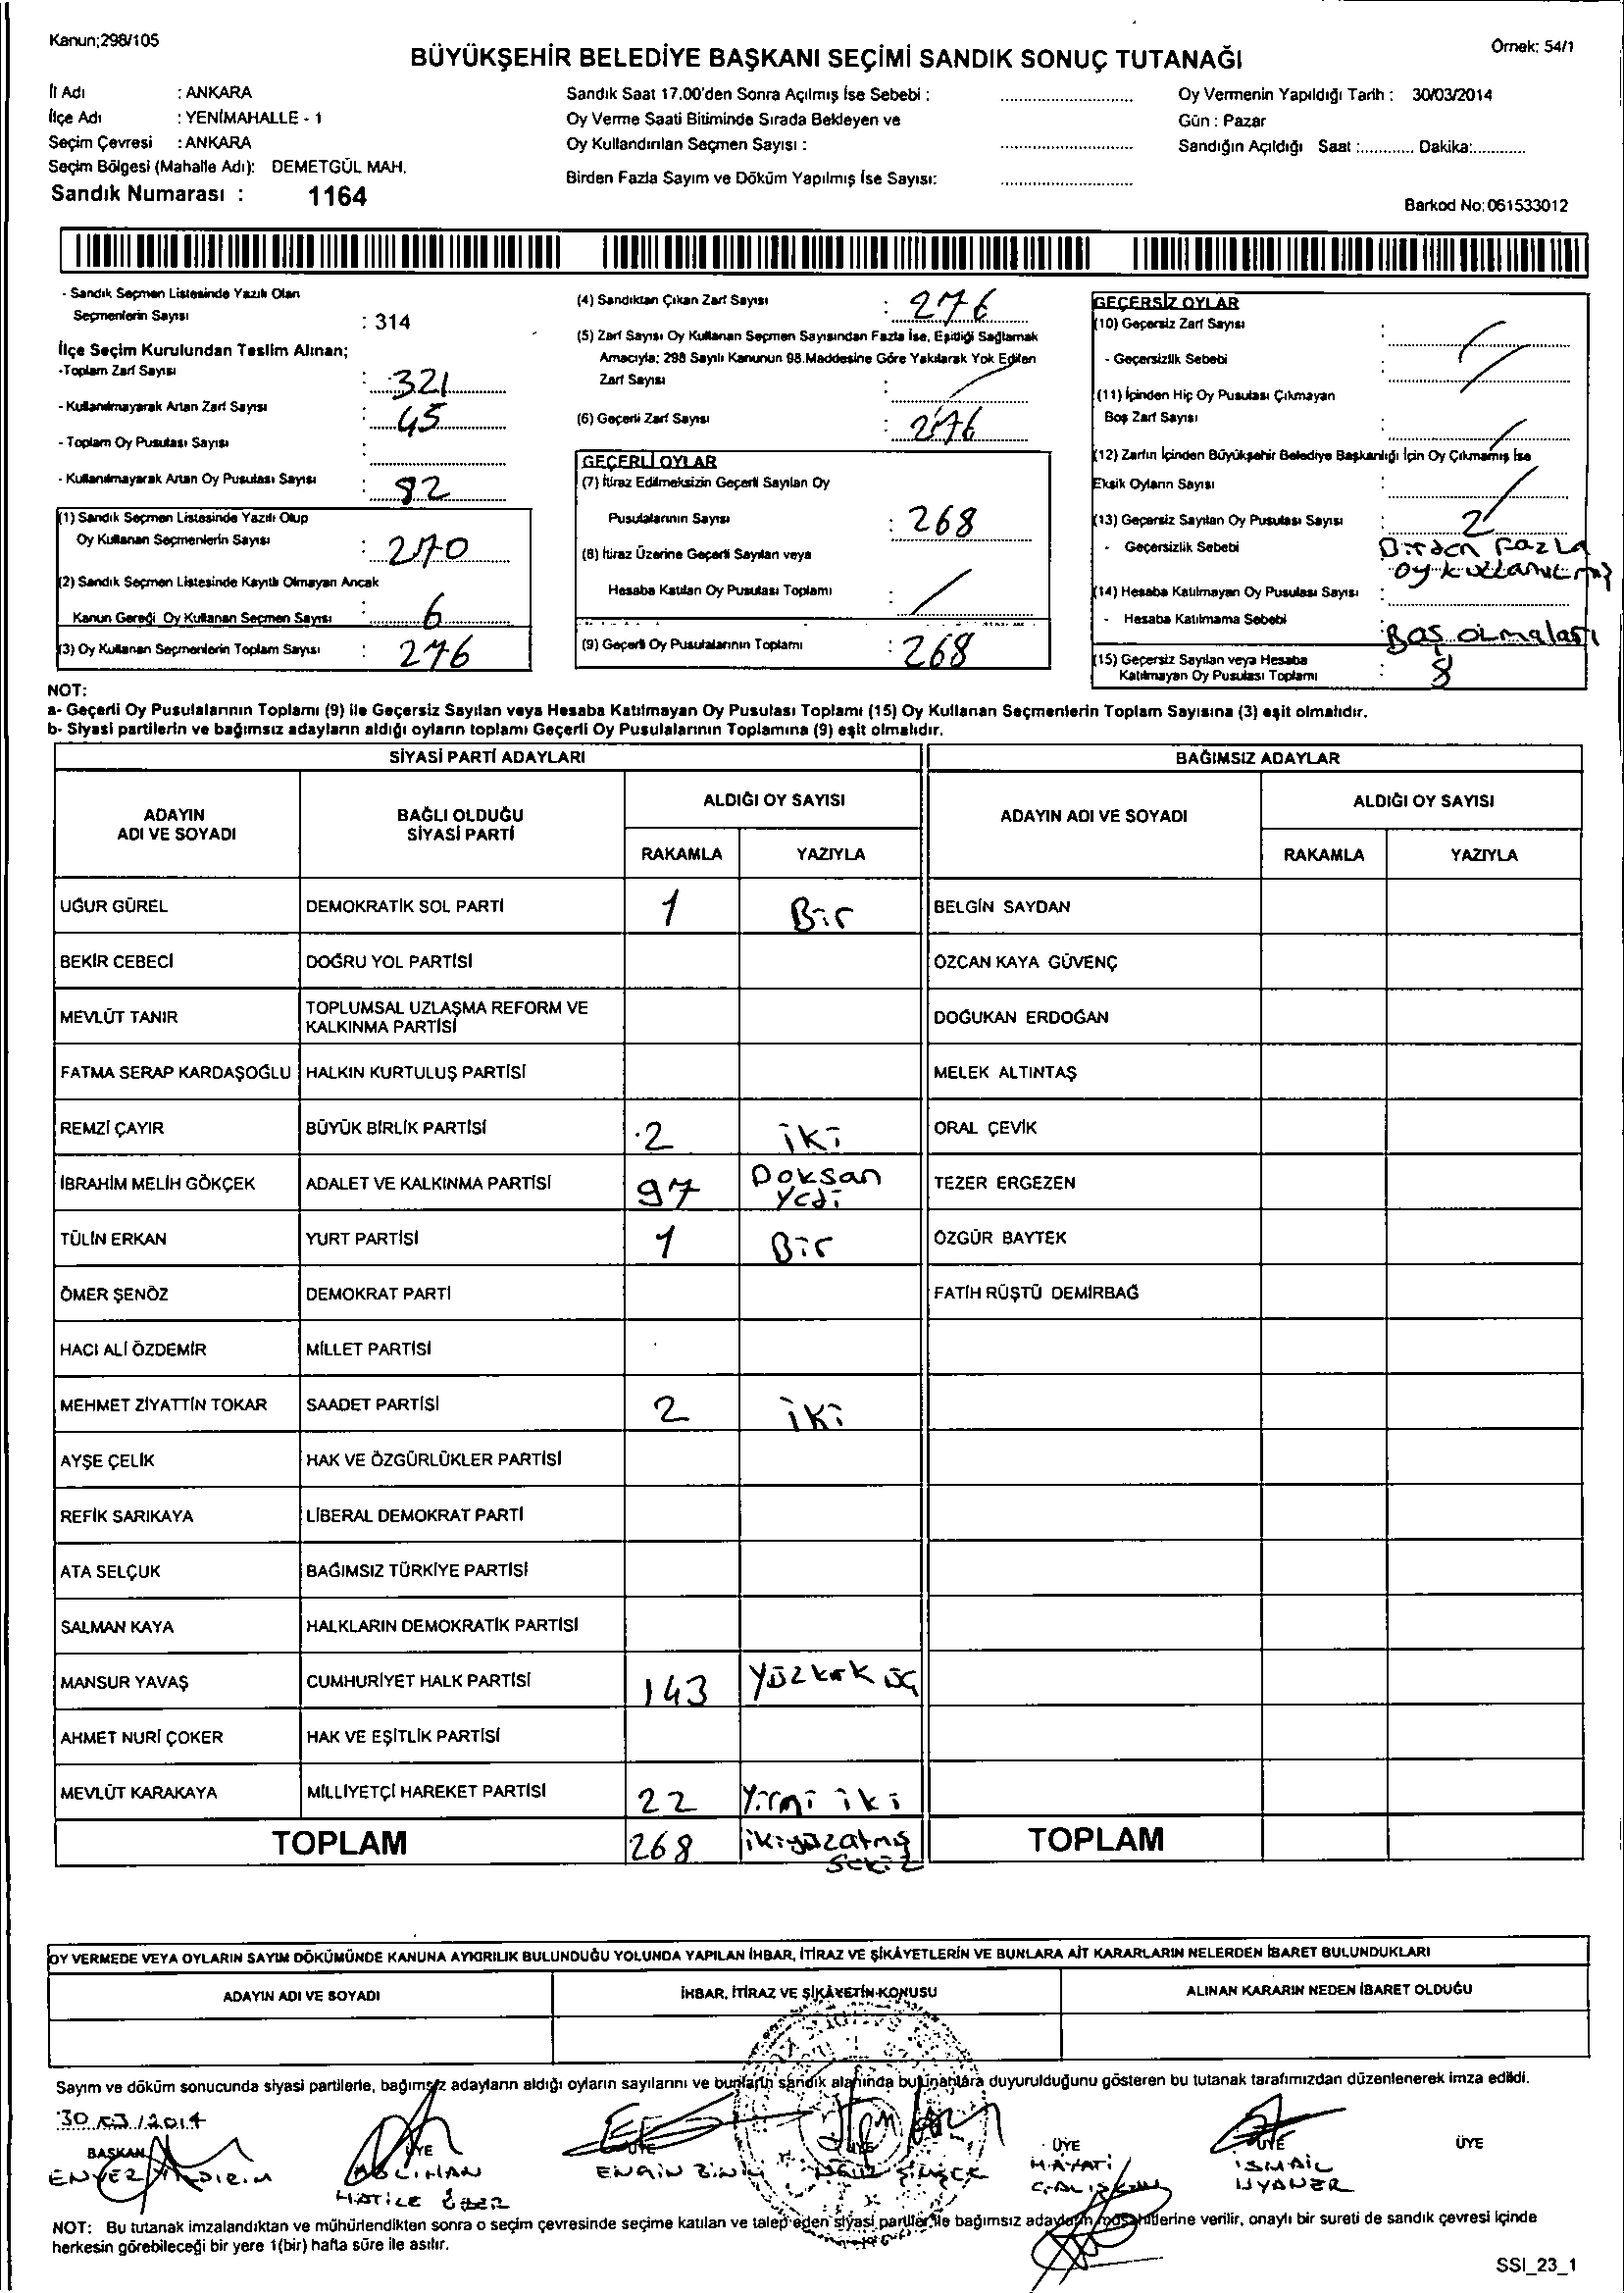 Kanun;298/105
Örnek: 54/1
BÜYÜKŞEHİR BELEDİYE BAŞKANI SEÇİMİ SANDIK SONUÇ TUTANAĞI
İl Adı : ANKARA
İlçe Adı : YENİMAHALLE - 1
Seçim Çevresi : ANKARA
Seçim Bölgesi (Mahalle Adı): DEMETGÜL MAH.
Sandık Numarası : 1164
Sandık Saat 17.00'den Sonra Açılmış İse Sebebi :
Oy Verme Saati Bitiminde Sırada Bekleyen ve
Oy Kullandırılan Seçmen Sayısı :
Birden Fazla Sayım ve Döküm Yapılmış İse Sayısı:
Oy Vermenin Yapıldığı Tarih : 30/03/2014
Gün : Pazar
Sandığın Açıldığı Saat :............ Dakika:............
Barkod No: 061533012
- Sandık Seçmen Listesinde Yazılı Olan
Seçmenlerin Sayısı : 314
İlçe Seçim Kurulundan Teslim Alınan;
-Toplam Zarf Sayısı : 321
- Kullanılmayarak Artan Zarf Sayısı : 45
- Toplam Oy Pusulası Sayısı :
- Kullanılmayarak Artan Oy Pusulası Sayısı : 92
(1) Sandık Seçmen Listesinde Yazılı Olup
Oy Kullanan Seçmenlerin Sayısı : 270
(2) Sandık Seçmen Listesinde Kayıtlı Olmayan Ancak
Kanun Gereği Oy Kullanan Seçmen Sayısı : 6
(3) Oy Kullanan Seçmenlerin Toplam Sayısı : 276
(4) Sandıktan Çıkan Zarf Sayısı : 276
(5) Zarf Sayısı Oy Kullanan Seçmen Sayısından Fazla İse, Eşitliği Sağlamak
Amacıyla; 298 Sayılı Kanunun 98.Maddesine Göre Yakılarak Yok Edilen
Zarf Sayısı : /
(6) Geçerli Zarf Sayısı : 276
GEÇERLİ OYLAR
(7) İtiraz Edilmeksizin Geçerli Sayılan Oy
Pusulalarının Sayısı : 268
(8) İtiraz Üzerine Geçerli Sayılan veya
Hesaba Katılan Oy Pusulası Toplamı : /
(9) Geçerli Oy Pusulalarının Toplamı : 268
GEÇERSİZ OYLAR
(10) Geçersiz Zarf Sayısı : /
- Geçersizlik Sebebi : /
(11) İçinden Hiç Oy Pusulası Çıkmayan
Boş Zarf Sayısı : /
(12) Zarfın İçinden Büyükşehir Belediye Başkanlığı İçin Oy Çıkmamış İse
Eksik Oyların Sayısı : /
(13) Geçersiz Sayılan Oy Pusulası Sayısı : 2
- Geçersizlik Sebebi Birden Fazla
oy kullanılmış
(14) Hesaba Katılmayan Oy Pusulası Sayısı :
- Hesaba Katılmama Sebebi : Boş olmaları
(15) Geçersiz Sayılan veya Hesaba
Katılmayan Oy Pusulası Toplamı : 8
NOT:
a- Geçerli Oy Pusulalarının Toplamı (9) ile Geçersiz Sayılan veya Hesaba Katılmayan Oy Pusulası Toplamı (15) Oy Kullanan Seçmenlerin Toplam Sayısına (3) eşit olmalıdır.
b- Siyasi partilerin ve bağımsız adayların aldığı oyların toplamı Geçerli Oy Pusulalarının Toplamına (9) eşit olmalıdır.
SİYASİ PARTİ ADAYLARI BAĞIMSIZ ADAYLAR
ADAYIN ADI VE SOYADI BAĞLI OLDUĞU SİYASİ PARTİ ALDIĞI OY SAYISI ADAYIN ADI VE SOYADI ALDIĞI OY SAYISI
RAKAMLA YAZIYLA RAKAMLA YAZIYLA
UĞUR GÜREL DEMOKRATİK SOL PARTİ 1 Bir BELGİN SAYDAN
BEKİR CEBECİ DOĞRU YOL PARTİSİ ÖZCAN KAYA GÜVENÇ
MEVLÜT TANIR TOPLUMSAL UZLAŞMA REFORM VE KALKINMA PARTİSİ DOĞUKAN ERDOĞAN
FATMA SERAP KARDAŞOĞLU HALKIN KURTULUŞ PARTİSİ MELEK ALTINTAŞ
REMZİ ÇAYIR BÜYÜK BİRLİK PARTİSİ 2 iki ORAL ÇEVİK
İBRAHİM MELİH GÖKÇEK ADALET VE KALKINMA PARTİSİ 97 Doksan Yedi TEZER ERGEZEN
TÜLİN ERKAN YURT PARTİSİ 1 Bir ÖZGÜR BAYTEK
ÖMER ŞENÖZ DEMOKRAT PARTİ FATİH RÜŞTÜ DEMİRBAĞ
HACI ALİ ÖZDEMİR MİLLET PARTİSİ
MEHMET ZİYATTİN TOKAR SAADET PARTİSİ 2 iki
AYŞE ÇELİK HAK VE ÖZGÜRLÜKLER PARTİSİ
REFİK SARIKAYA LİBERAL DEMOKRAT PARTİ
ATA SELÇUK BAĞIMSIZ TÜRKİYE PARTİSİ
SALMAN KAYA HALKLARIN DEMOKRATİK PARTİSİ
MANSUR YAVAŞ CUMHURİYET HALK PARTİSİ 143 Yüzkırk üç
AHMET NURİ ÇOKER HAK VE EŞİTLİK PARTİSİ
MEVLÜT KARAKAYA MİLLİYETÇİ HAREKET PARTİSİ 22 Yirmi iki
TOPLAM 268 ikiyüzatmış sekiz TOPLAM
OY VERMEDE VEYA OYLARIN SAYIM DÖKÜMÜNDE KANUNA AYKIRILIK BULUNDUĞU YOLUNDA YAPILAN İHBAR, İTİRAZ VE ŞİKÂYETLERİN VE BUNLARA AİT KARARLARIN NELERDEN İBARET BULUNDUKLARI
ADAYIN ADI VE SOYADI İHBAR, İTİRAZ VE ŞİKÂYETİN KONUSU ALINAN KARARIN NEDEN İBARET OLDUĞU
Sayım ve döküm sonucunda siyasi partilerle, bağımsız adayların aldığı oyların sayılarını ve bunların sandık alanında bulunanlara duyurulduğunu gösteren bu tutanak tarafımızdan düzenlenerek imza edildi.
30/03/2014
BAŞKAN ÜYE ÜYE ÜYE ÜYE ÜYE ÜYE
ENVER ENGİN HAYATİ İSMAİL
HATİCE UYANER
NOT: Bu tutanak imzalandıktan ve mühürlendikten sonra o seçim çevresinde seçime katılan ve talep eden siyasi partiler ile bağımsız adayların müşahitlerine verilir, onaylı bir sureti de sandık çevresi içinde
herkesin görebileceği bir yere 1(bir) hafta süre ile asılır.
SSI_23_1